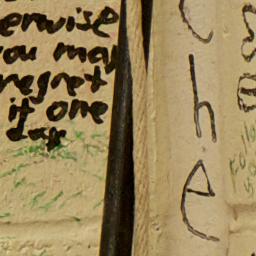 erwise
you may
regret
it one
day
C
h
e